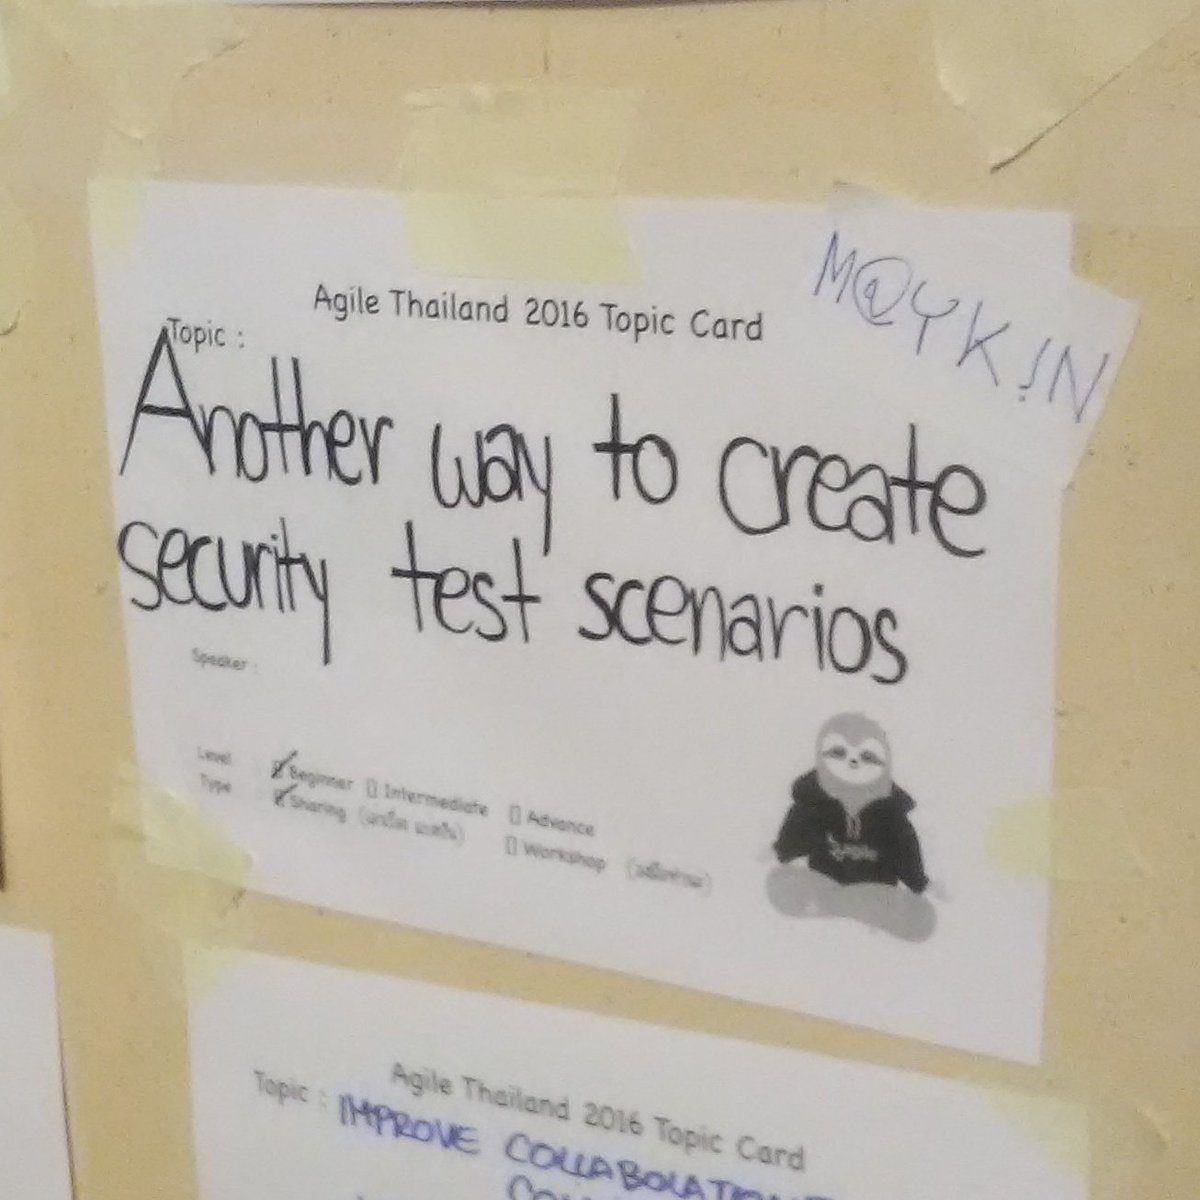 M@YK!N
Agile Thailand 2016 Topic Card
Topic :
Another way to create
security test scenarios
Speaker :
Level Beginner Intermediate Advance
Type Sharing Workshop
Agile Thailand 2016 Topic Card
Topic : IMPROVE COLLABOLATION